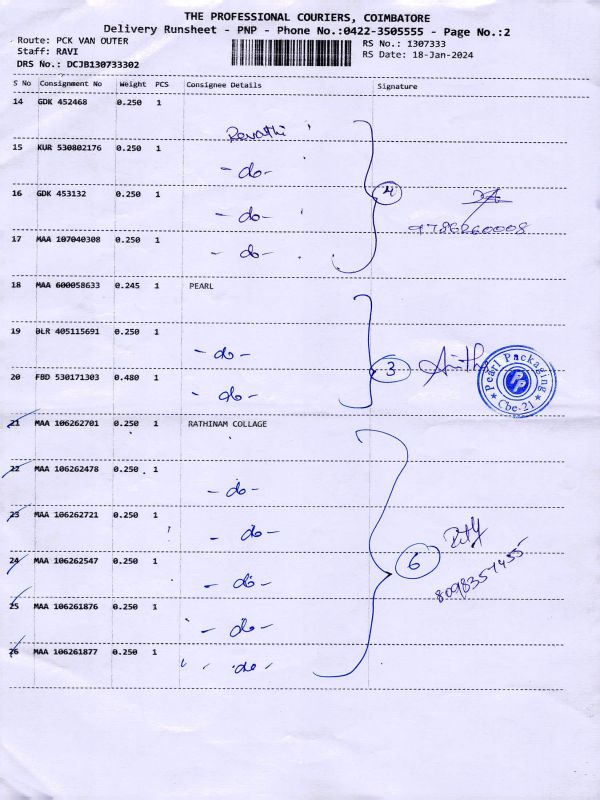 THE PROFESSIONAL COURIERS, COIMBATORE
Delivery Runsheet - PNP - Phone No.:0422-3505555 - Page No.:2
Route: PCK VAN OUTER
RS No.: 1307333
Staff: RAVI
RS Date: 18-Jan-2024
DRS No.: DCJB130733302
S No Consignment No Weight PCS Consignee Details Signature
14 GDK 452468 0.250 1
Revathi
15 KUR 530802176 0.250 1
- do -
16 GDK 453132 0.250 1
4
- do -
9786260008
17 MAA 107040308 0.250 1
- do -
18 MAA 600058633 0.245 1 PEARL
19 BLR 405115691 0.250 1
- do -
3
Pearl Packaging
PP
Cbe-21
20 FBD 530171303 0.480 1
- do -
21 MAA 106262701 0.250 1 RATHINAM COLLAGE
22 MAA 106262478 0.250 1
- do -
23 MAA 106262721 0.250 1
- do -
24 MAA 106262547 0.250 1
6
8098357455
- do -
25 MAA 106261876 0.250 1
- do -
26 MAA 106261877 0.250 1
- do -